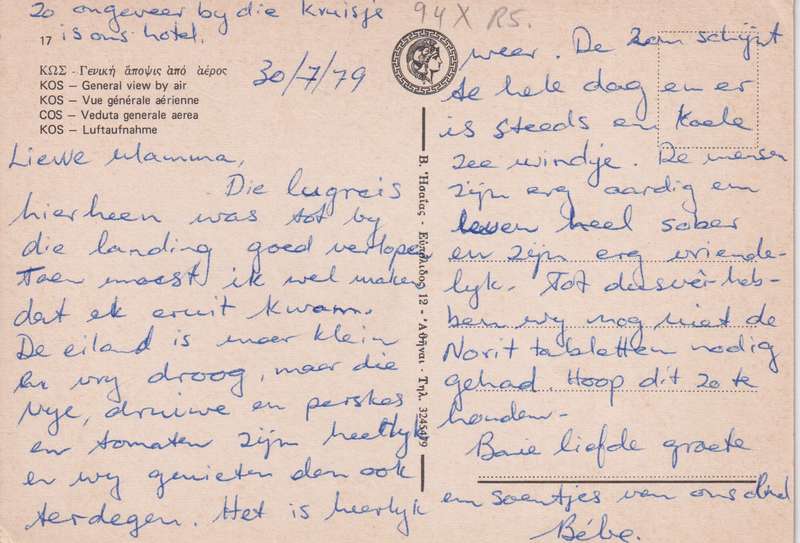 Zo ongeveer by die Kruisje
is ons hotel.
94 X R5.
17
ΚΩΣ - Γενική ἄποψις ἀπό ἀέρος
KOS – General view by air
KOS – Vue générale aérienne
COS – Veduta generale aerea
KOS – Luftaufnahme
30/7/79
Β. Ἡσαΐας - Εὐπόλιδος 12 - Ἀθῆναι - Τηλ. 3245479
Liewe Mamma,
Die lugreis
hierheen was tot by
die landing goed verlopen
Toen moest ik wel maken
dat ek eruit kwam.
De eiland is maar klein
en vry droog, maar die
vye, druiwe en perskes
en tomaten zijn heerlyk
en wy genieten dan ook
terdegen. Het is heerlyk
weer. De zon schijnt
de hele dag en er
is steeds en koele
zee windje. De mensen
zijn erg aardig en
leven heel sober
en zijn erg vriende-
lyk. Tot dusvêr heb-
ben wy nog niet de
Norit tabletten nodig
gehad. Hoop dit zo te
houden.
Baie liefde groete
en soentjes van ons
Bébe.